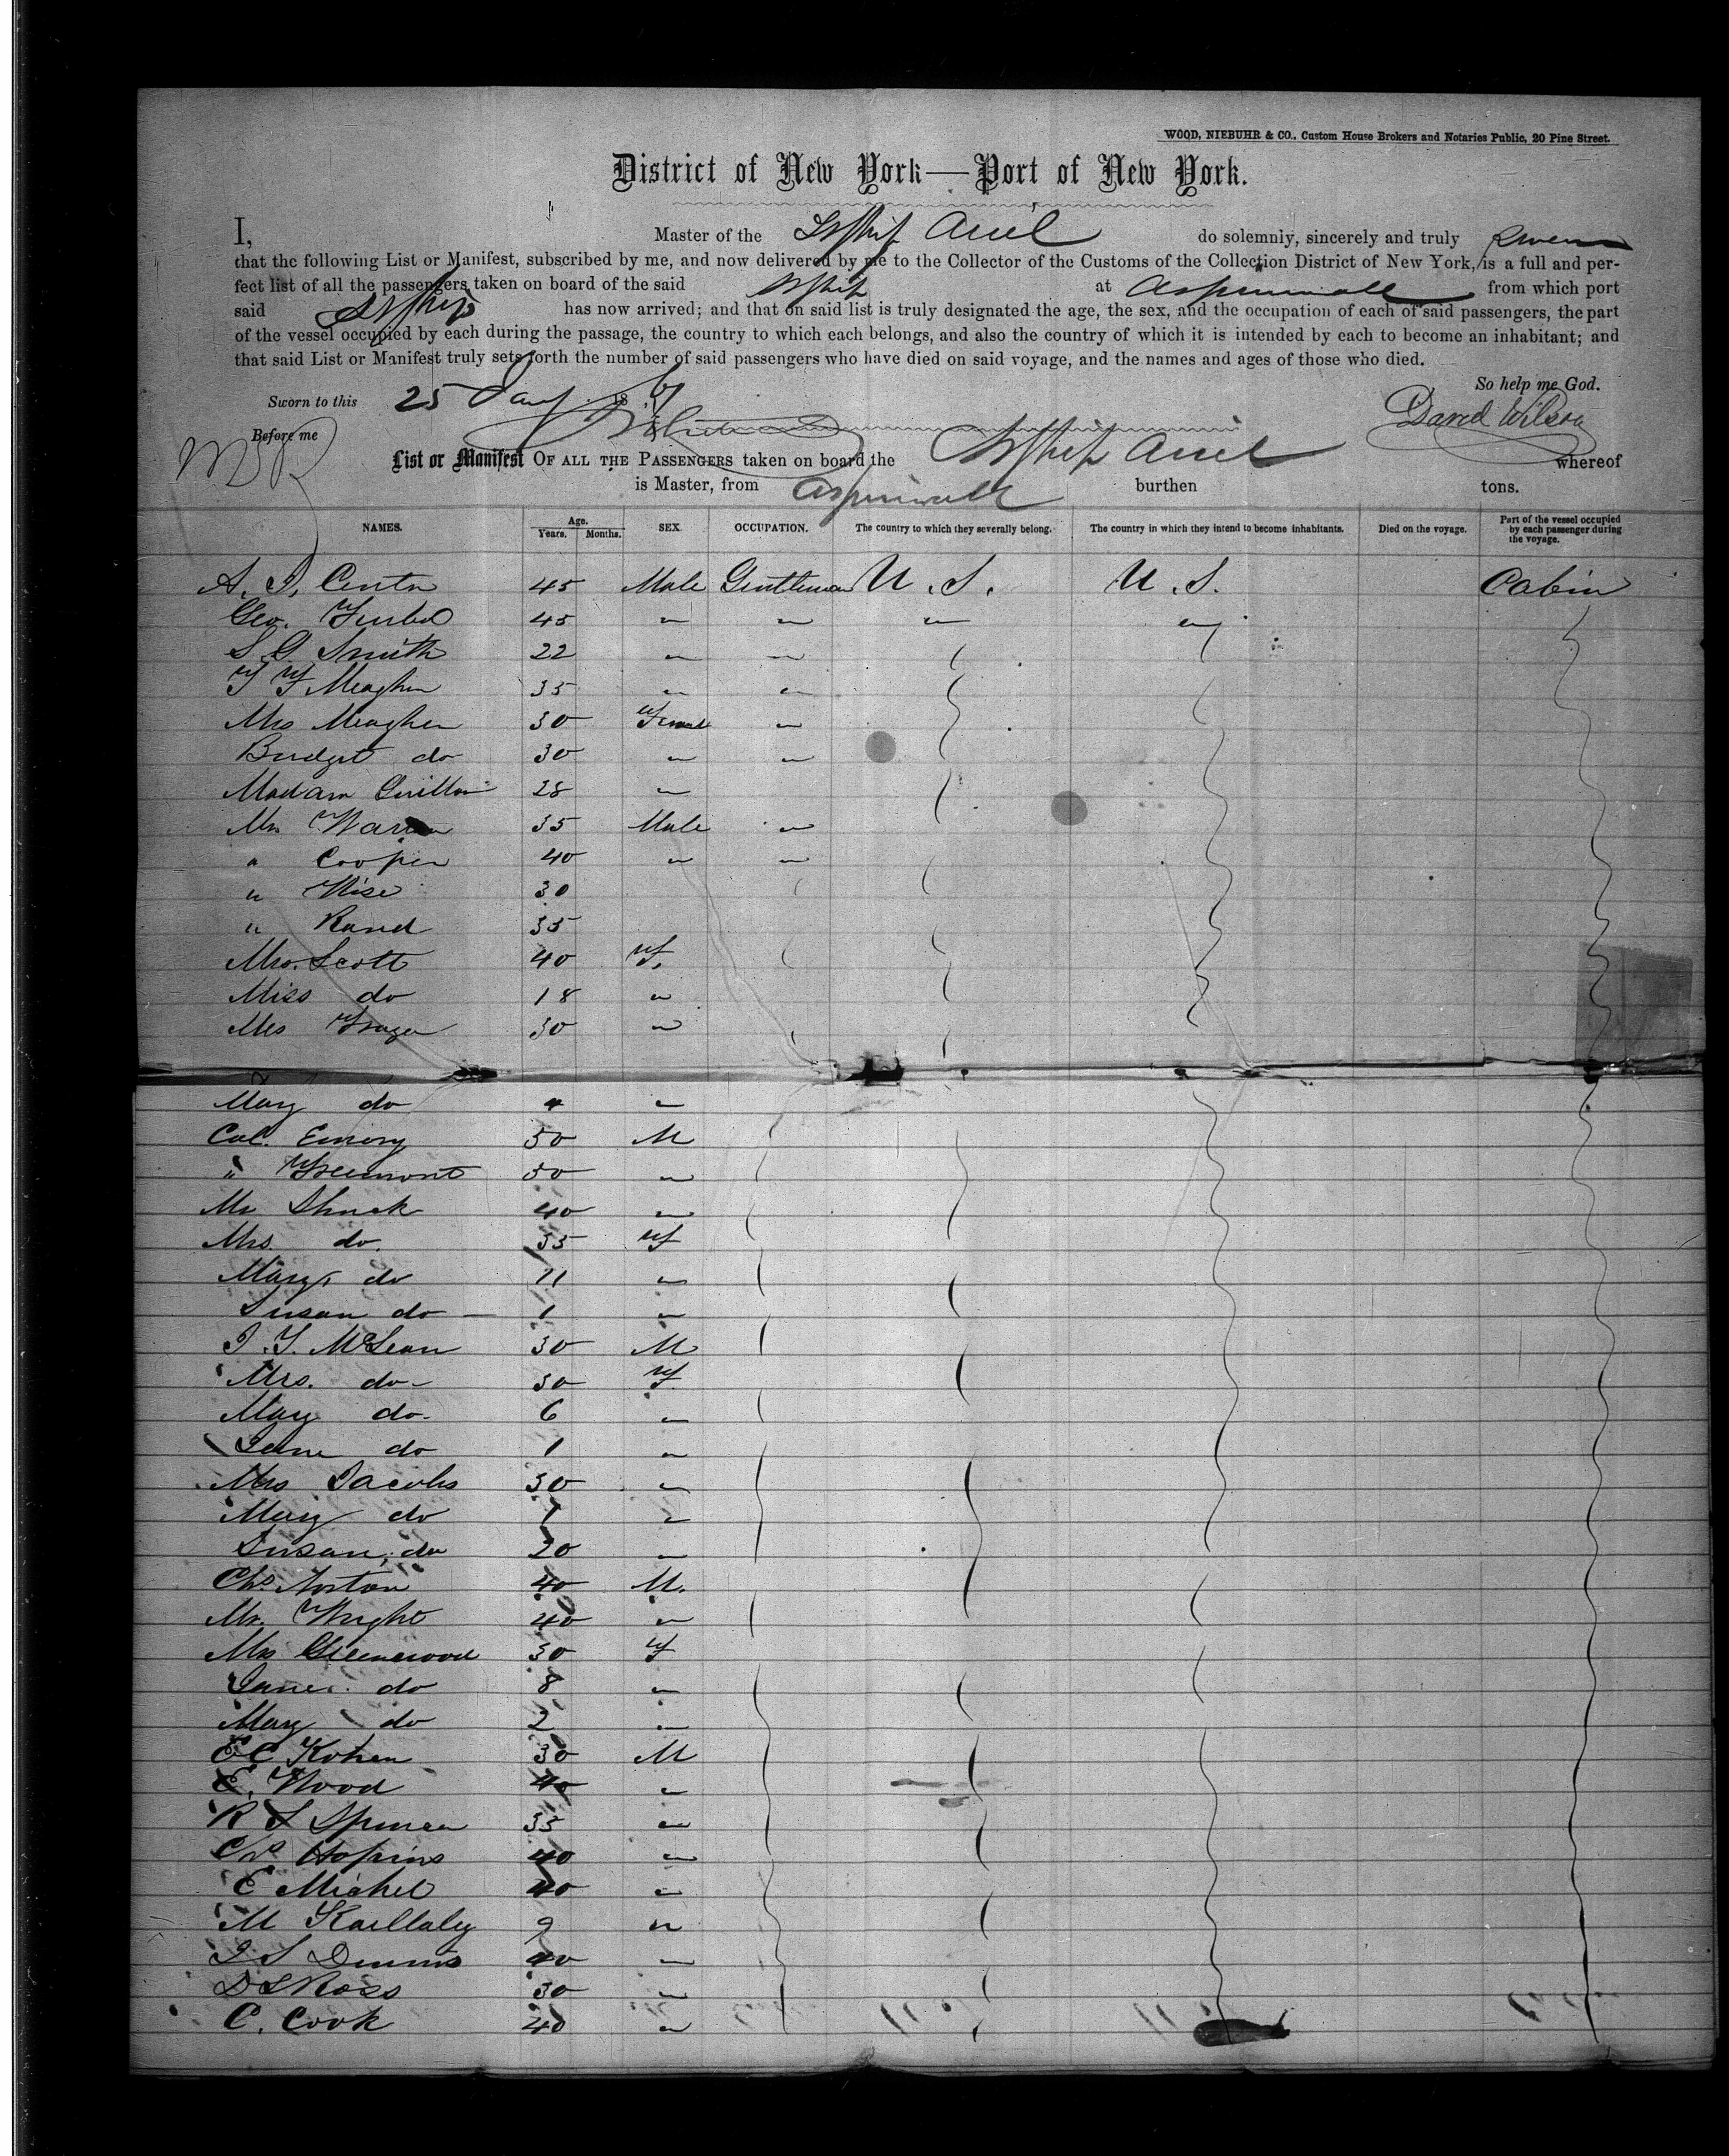 WOOD, NIEBUHR & CO., Custom House Brokers and Notaries Public, 20 Pine Street.
District of New York—Port of New York.
I, Master of the SShip Ariel do solemnly, sincerely and truly swear
that the following List or Manifest, subscribed by me, and now delivered by me to the Collector of the Customs of the Collection District of New York, is a full and per-
fect list of all the passengers taken on board of the said SShip at Aspinwall from which port
said SShip has now arrived; and that on said list is truly designated the age, the sex, and the occupation of each of said passengers, the part
of the vessel occupied by each during the passage, the country to which each belongs, and also the country of which it is intended by each to become an inhabitant; and
that said List or Manifest truly sets forth the number of said passengers who have died on said voyage, and the names and ages of those who died.
So help me God.
Sworn to this 25 Jany 18
David Wilson
Before me
List or Manifest OF ALL THE PASSENGERS taken on board the SShip Ariel whereof
is Master, from Aspinwall burthen tons.
NAMES. Age. Years. Months. SEX. OCCUPATION. The country to which they severally belong. The country in which they intend to become inhabitants. Died on the voyage. Part of the vessel occupied by each passenger during the voyage.
45 Male Gentleman U.S. U.S. Cabin
Geo. 45 " " " "
S G Smith 22 " "
T F Meagher 35 " "
Mrs Meagher 30 Female "
Bridget do 30 " "
Madam 28 "
Mr Warren 35 Male "
" Cooper 40 " "
" Wise 30
" Rand 35
Mrs. Scott 40 F.
Miss do 18 "
Mrs Frazer 30 "
Mary do 4 "
Col. Emory 50 M
" Freemont 50 "
Mr Shuck 40 "
Mrs. do. 35 F
Mary do 11 "
Susan do 1 "
J. T. McLean 30 M
Mrs. do 30 F
Mary do. 6 "
Jane do 1 "
Mrs Jacobs 30 "
Mary do 7 "
Susan do 20 "
Chs Norton 40 M.
Mr. Wright 40 "
Mrs Greenwood 30 F
Jane do 8 "
Mary do 2 "
E C Kohen 30 M
E. Wood 40 "
R S Spencer 35 "
Chs Hopins 40 "
E Michel 40 "
M 9 "
J S Dennis 40 "
D S Ross 30 "
C. Cook 40 "